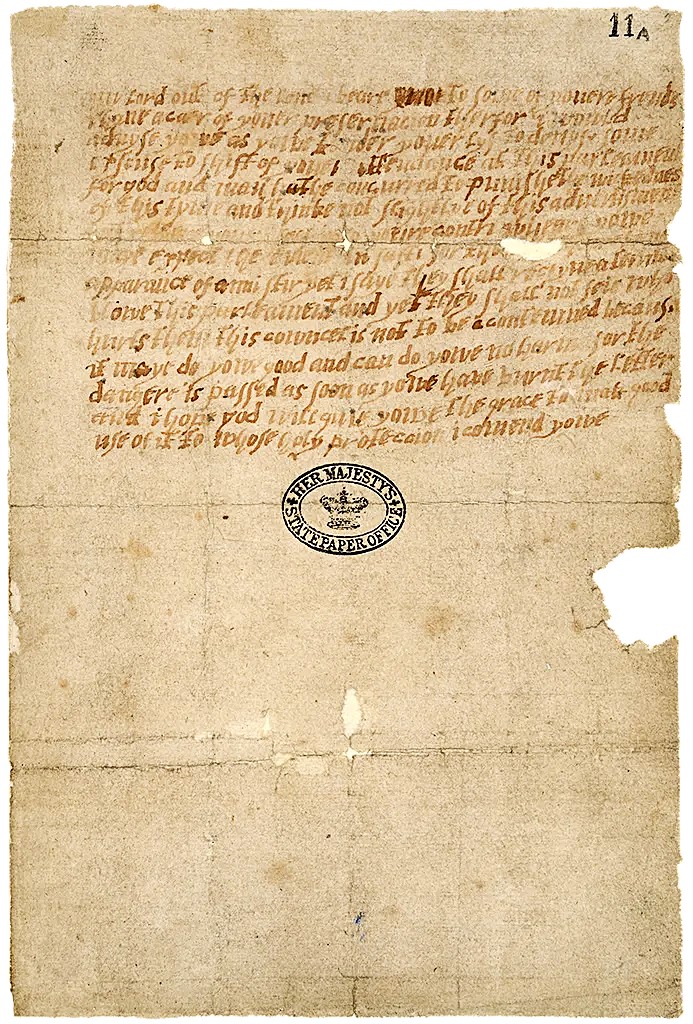 11A
lord out of the love i beare to some of youere frends
i have a caer of youer preservacion therfor i would
advyse yowe as yowe tender youer lyf to devise some
excuse to shift of youer attendance at this parleament
for god and man hathe concurred to punishe the wickednes
of this tyme and thinke not slightlye of this advertisment
contri wheare yowe
maye expect the event in safti for
apparance of anni stir yet i saye they shall receyve a terrible
blowe this parleament and yet they shall not seie who
hurts them this councel is not to be acontemned because
it maye do yowe good and can do yowe no harme for the
dangere is passed as soon as yowe have burnt the letter
and i hope god will give yowe the grace to mak good
use of it to whose holy proteccion i comend yowe
HER MAJESTY'S
STATE PAPER OFFICE